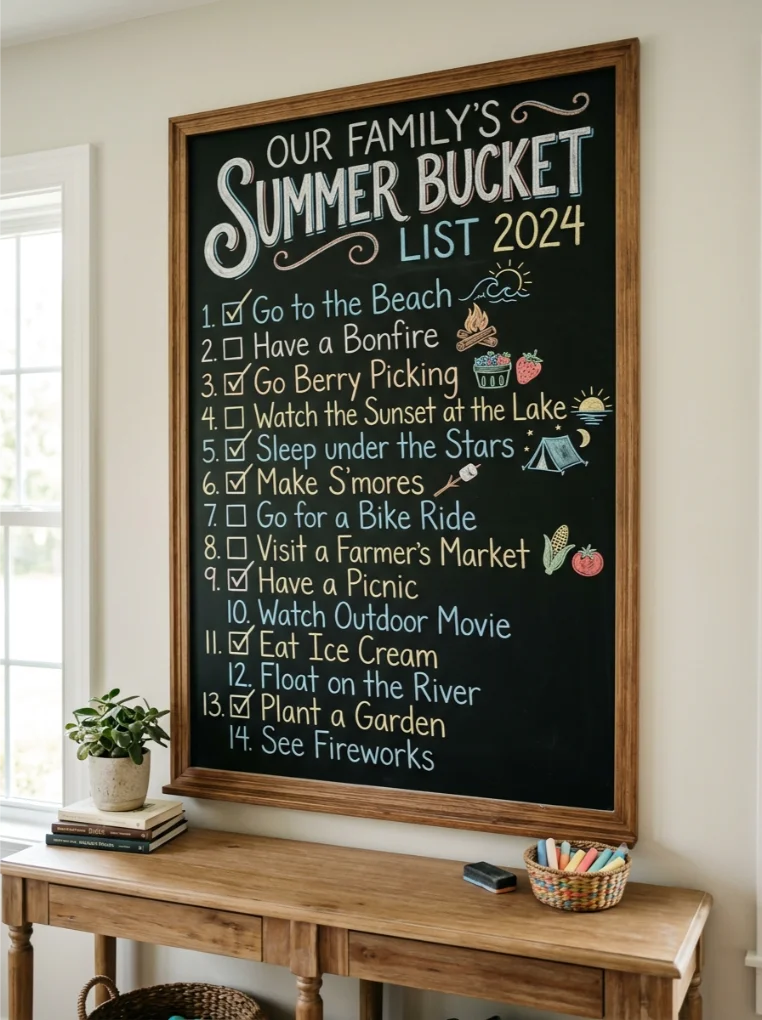 OUR FAMILY'S
SUMMER BUCKET
LIST 2024
1. ☑ Go to the Beach
2. ☐ Have a Bonfire
3. ☑ Go Berry Picking
4. ☐ Watch the Sunset at the Lake
5. ☑ Sleep under the Stars
6. ☑ Make S'mores
7. ☐ Go for a Bike Ride
8. ☐ Visit a Farmer's Market
9. ☑ Have a Picnic
10. Watch Outdoor Movie
11. ☑ Eat Ice Cream
12. Float on the River
13. ☑ Plant a Garden
14. See Fireworks